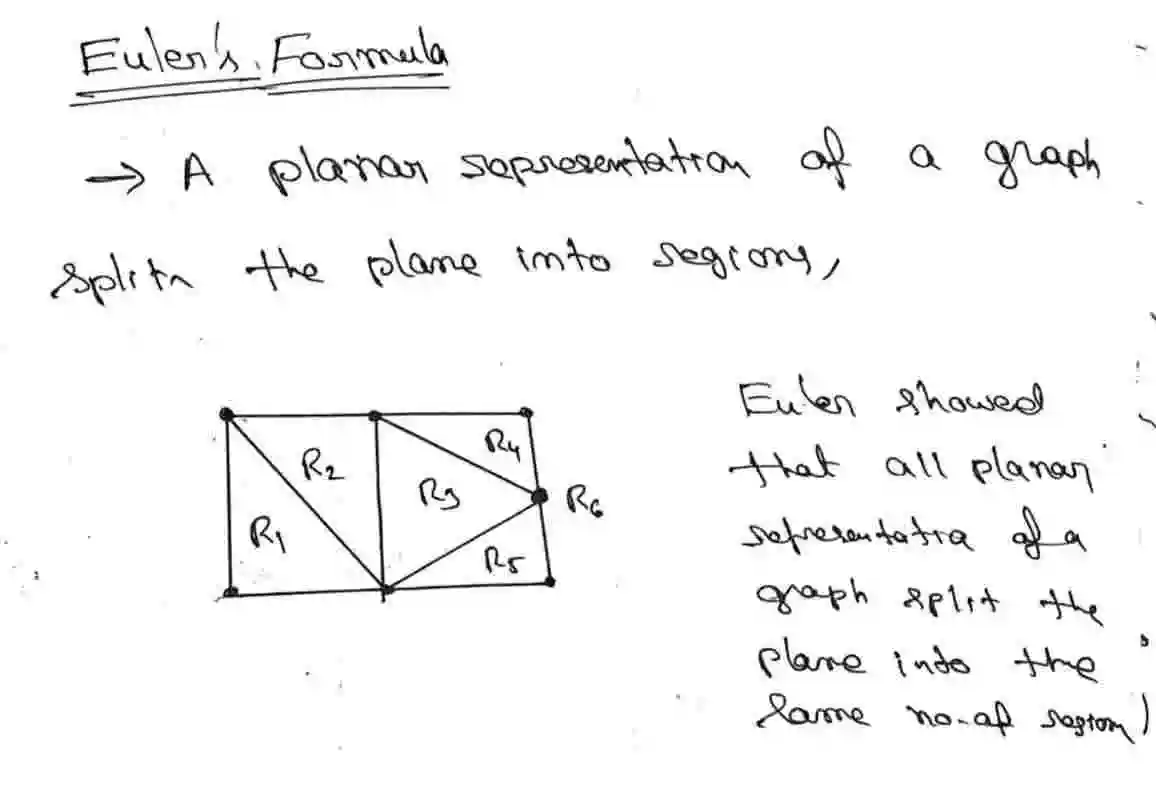 Euler's Formula
→ A planar representation of a graph
splits the plane into regions,
Euler showed
that all planar
representatio of a
graph split the
plane into the
same no. of region)
R1
R2
R3
R4
R5
R6